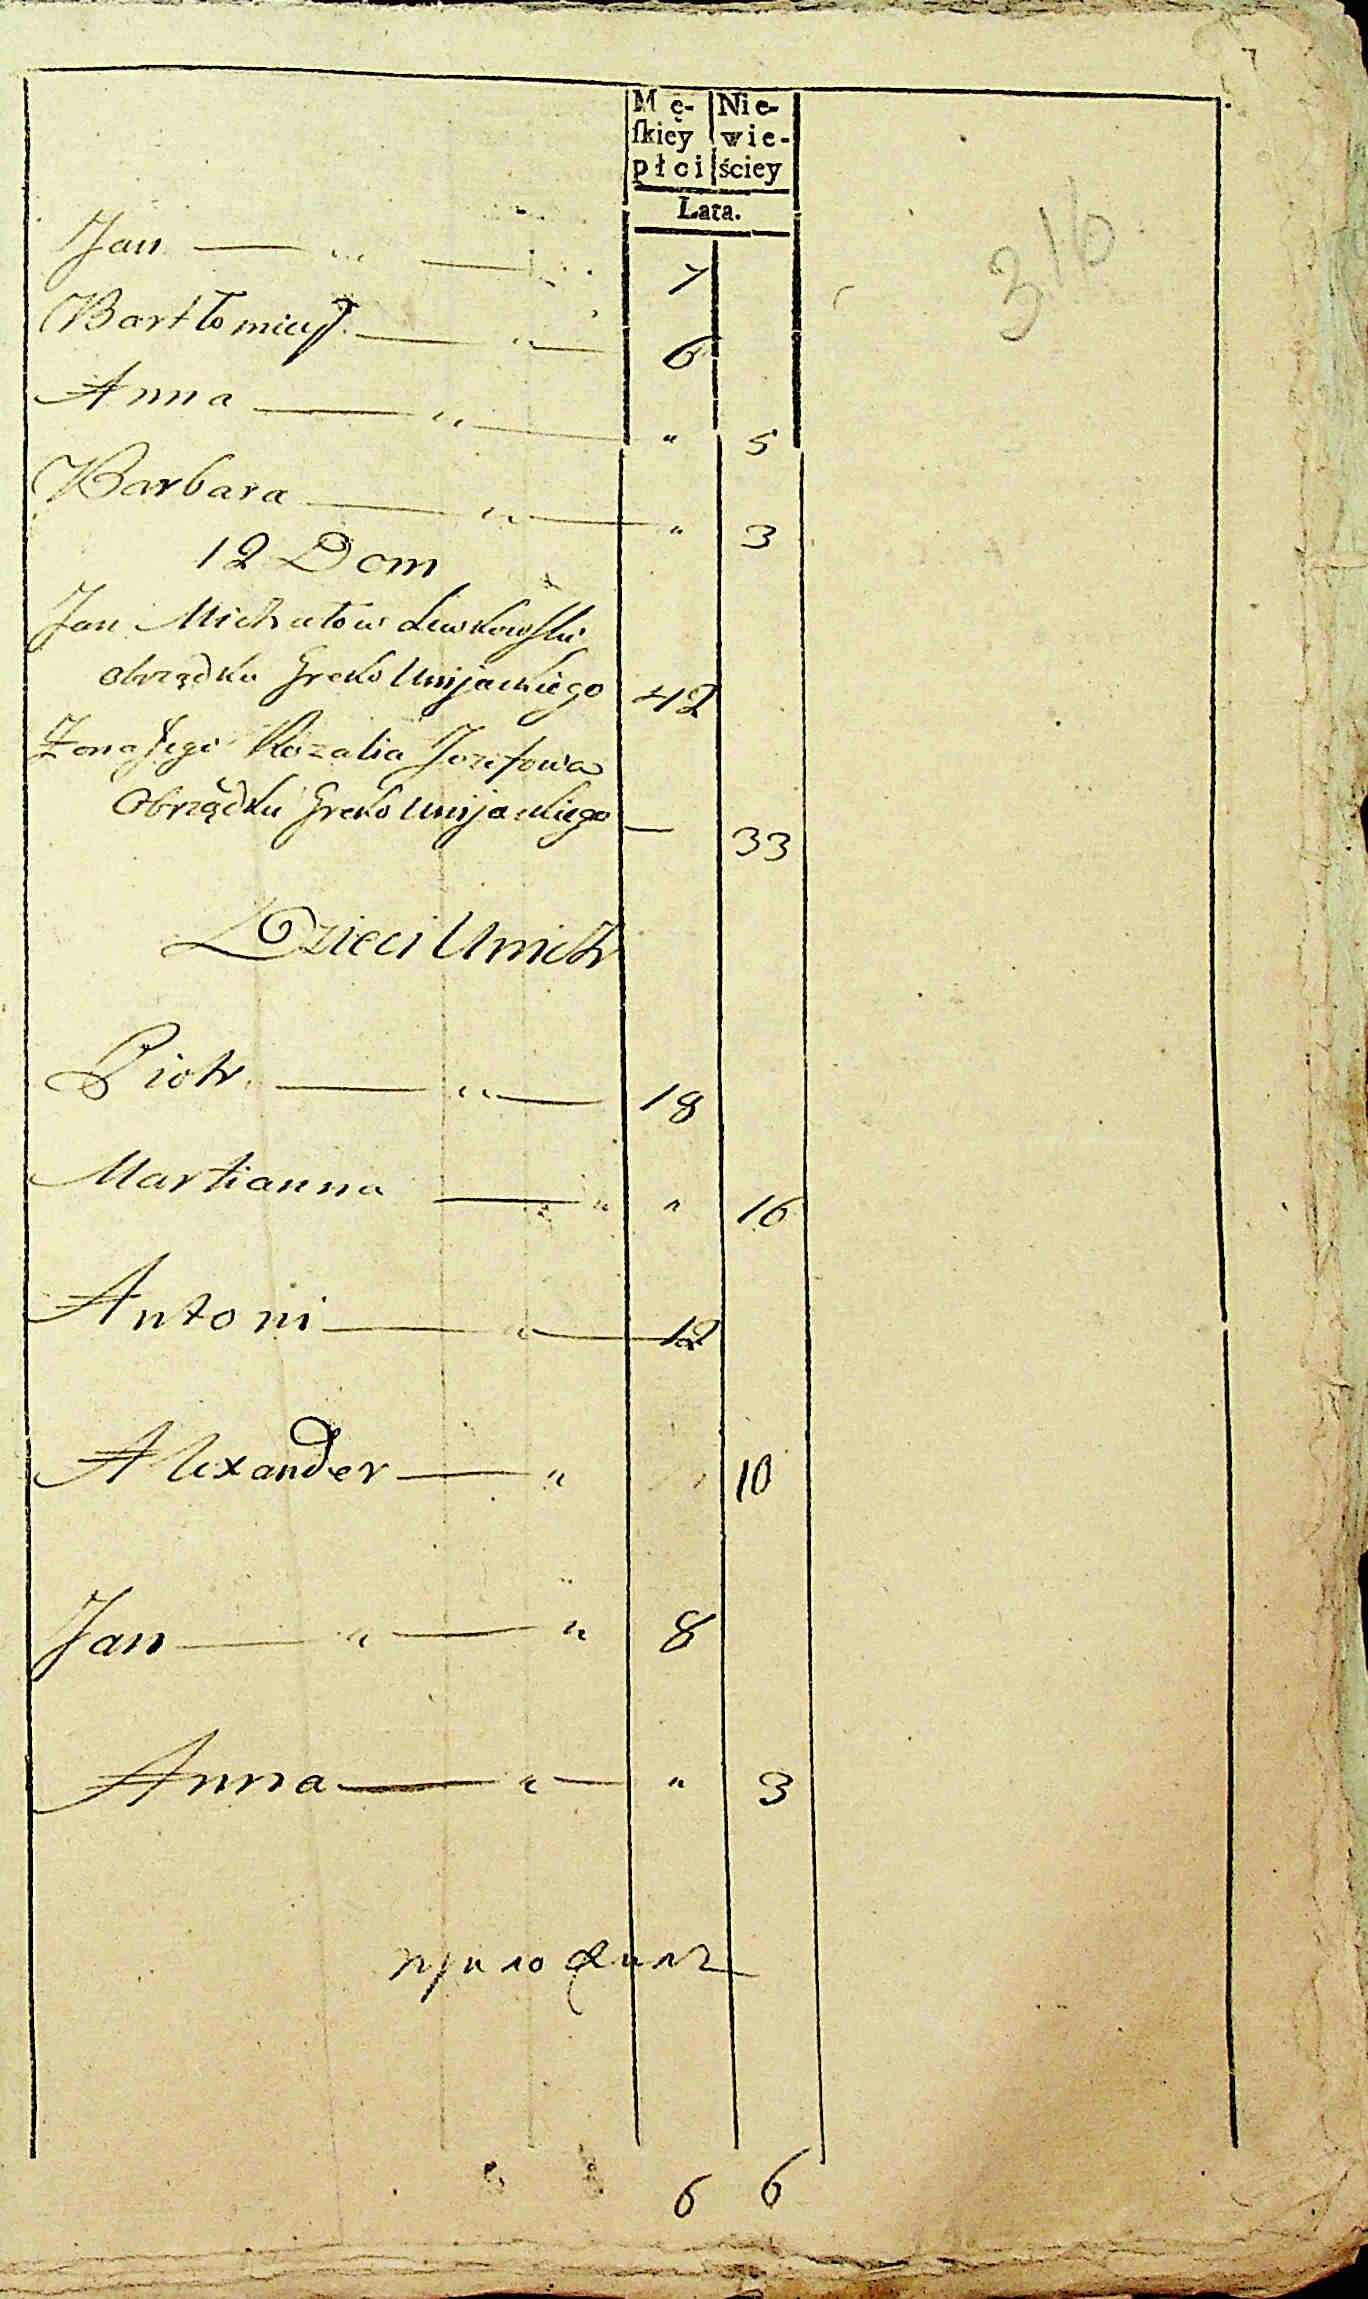 7
Mę- Nie-
ſkiey wie-
płci ściey
Lata.
316
Jan — " — 7
Bartłomiey — " — 6
Anna — " — " 5
Barbara — " — " 3
12 Dom
Jan Michałow Lewkowski
obrządku Greko Unijackiego 42
Żona Jego Rozalia Jozefowa
Obrządku Greko Unijackiego — 33
Dzieci Unich
Piotr — " — 18
Martianna — " " 16
Antoni — " — 12
Alexander — " 10
Jan — " — " 8
Anna — " — " 3
6 6